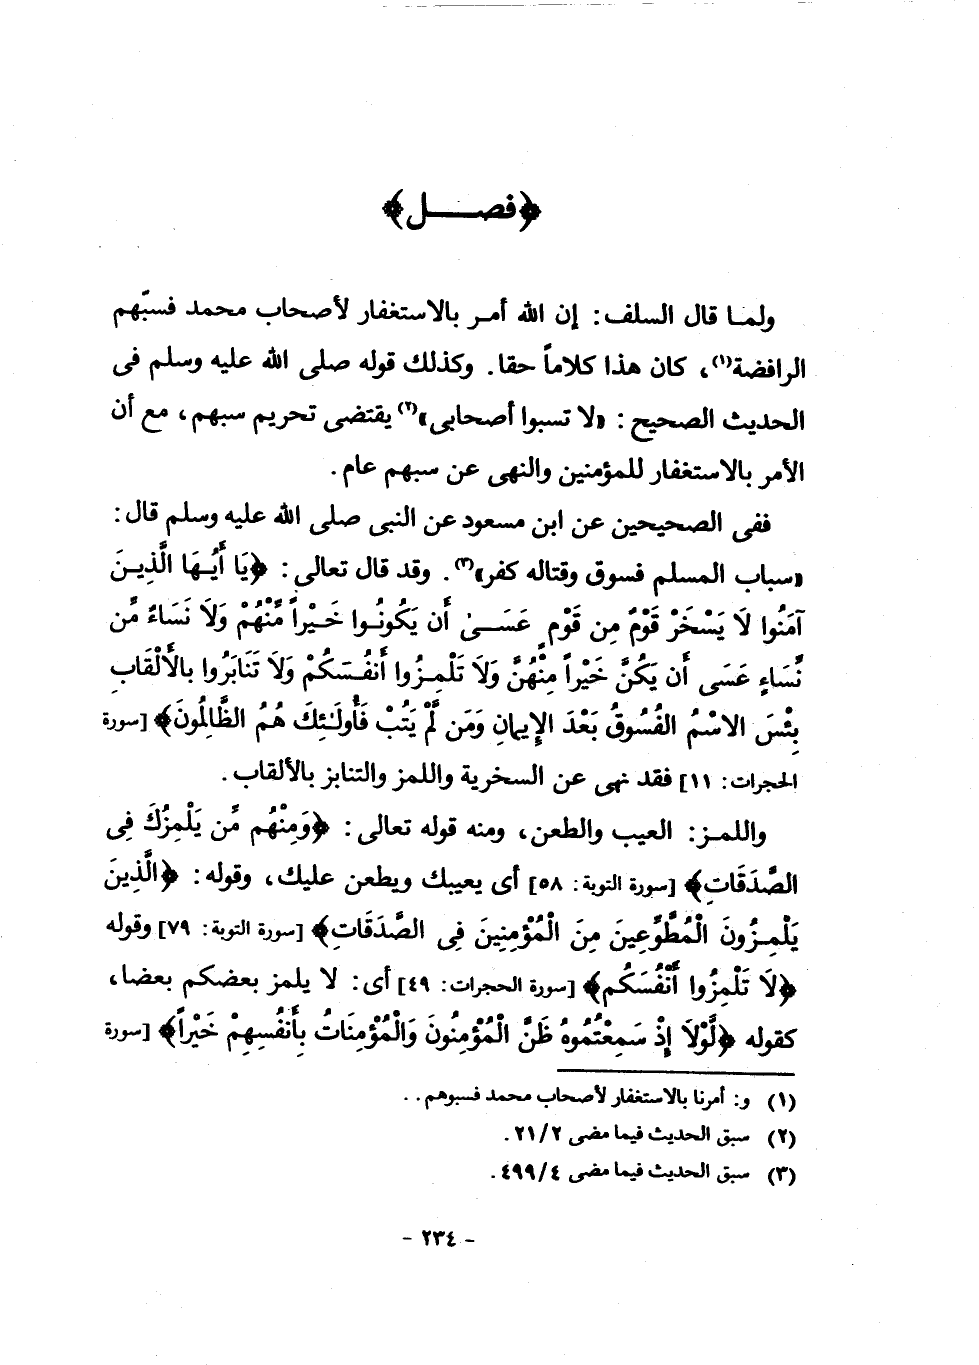 ﴿فصـــل﴾
ولمـا قال السلف: إن الله أمـر بالاستغفار لأصحاب محمد فسبّهم
الرافضة(١)، كان هذا كلاماً حقا. وكذلك قوله صلى الله عليه وسلم فى
الحديث الصحيح: «لا تسبوا أصحابى»(٢) يقتضى تحريم سبهم، مع أن
الأمر بالاستغفار للمؤمنين والنهى عن سبهم عام.
ففى الصحيحين عن ابن مسعود عن النبى صلى الله عليه وسلم قال:
«سباب المسلم فسوق وقتاله كفر»(٣). وقد قال تعالى: ﴿يَا أَيُّهَا الَّذِينَ
آمَنُوا لَا يَسْخَرْ قَوْمٌ مِن قَوْمٍ عَسَــىٰ أَن يَكُونُـوا خَـيْراً مِّنْهُمْ وَلَا نِسَاءٌ مِّن
نِّسَاءٍ عَسَى أَن يَكُنَّ خَيْراً مِنْهُنَّ وَلَا تَلْمِـزُوا أَنفُـسَكُمْ وَلَا تَنَابَزُوا بِالأَلْقَابِ
بِئْسَ الاسْمُ الفُسُوقُ بَعْدَ الإِيمانِ وَمَن لَّمْ يَتُبْ فَأُولَـٰئِكَ هُمُ الظَّالِمُونَ﴾ [سورة
الحجرات: ١١] فقد نهى عن السخرية واللمز والتنابز بالألقاب.
واللمـز: العيب والطعن، ومنه قوله تعالى: ﴿وَمِنْهُم مَّن يَلْمِزُكَ فِى
الصَّدَقَاتِ﴾ [سورة التوبة: ٥٨] أى يعيبك ويطعن عليك، وقوله: ﴿الَّذِينَ
يَلْمِـزُونَ الْمُطَّوِّعِينَ مِنَ الْمُؤْمِنِينَ فِى الصَّدَقَاتِ﴾ [سورة التوبة: ٧٩] وقوله
﴿لَا تَلْمِزُوا أَنْفُسَكُم﴾ [سورة الحجرات: ٤٩] أى: لا يلمز بعضكم بعضا،
كقوله ﴿لَّوْلَا إِذْ سَمِعْتُمُوهُ ظَنَّ الْمُؤْمِنُونَ وَالْمُؤْمِنَاتُ بِأَنفُسِهِمْ خَيْراً﴾ [سورة
(١) و: أمرنا بالاستغفار لأصحاب محمد فسبوهم..
(٢) سبق الحديث فيما مضى ٢١/٢.
(٣) سبق الحديث فيما مضى ٤٩٩/٤.
- ٢٣٤ -